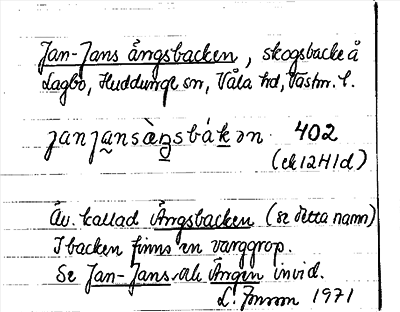 Jan-Jans ångsbacken, skogsbacke å
Lagbo, Huddunge sn, Våla hd, Västm. l.
janjansὰŋsbákən 402
(ek 12H1d)
Äv. kallad Ängsbacken (se detta namn)
I backen finns en varggrop.
Se Jan-Jans och Ängen invid.
L. Jonson 1971